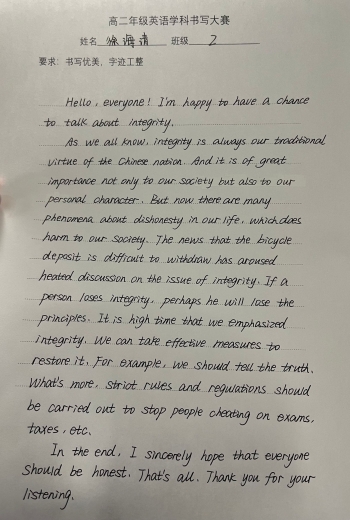 高二年级英语学科书写大赛
姓名 徐海清 班级 2
要求：书写优美，字迹工整
Hello, everyone! I'm happy to have a chance
to talk about integrity.
As we all know, integrity is always our traditional
virtue of the Chinese nation. And it is of great
importance not only to our society but also to our
personal character. But now there are many
phenomena about dishonesty in our life, which does
harm to our society. The news that the bicycle
deposit is difficult to withdraw has aroused
heated discussion on the issue of integrity. If a
person loses integrity, perhaps he will lose the
principles. It is high time that we emphasized
integrity. We can take effective measures to
restore it. For example, we should tell the truth.
What's more, strict rules and regulations should
be carried out to stop people cheating on exams,
taxes, etc.
In the end, I sincerely hope that everyone
should be honest. That's all. Thank you for your
listening.